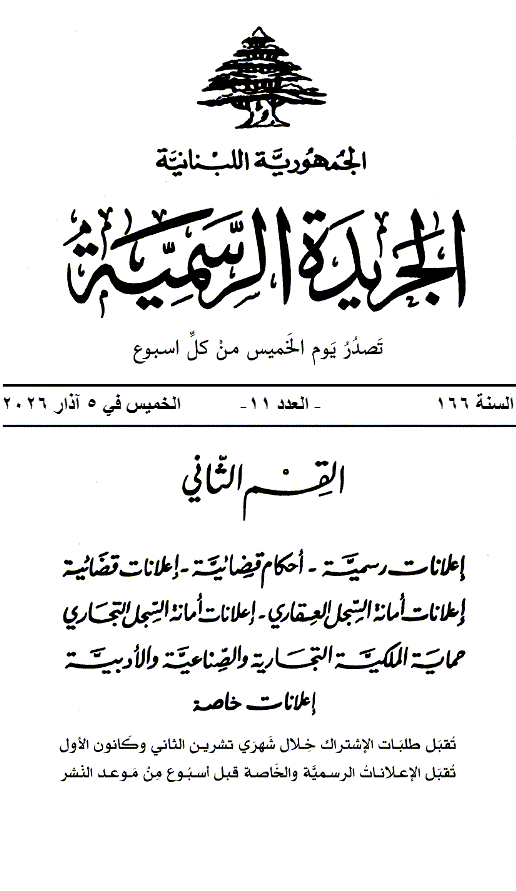 الجمهورية اللبنانية
الجريدة الرسمية
تَصدُرُ يَوم الخَميس منْ كلِّ اسبوع
السنة ١٦٦ - العدد ١١- الخميس في ٥ آذار ٢٠٢٦
القِسْم الثّاني
إعلانات رسميَّة - أحكام قضائيَّة - إعلانات قضائية
إعلانات أمانة السِّجل العِقاري - إعلانات أمانة السِّجل التجاري
حماية الملكيَّة التجارية والصِّناعيَّة والأدبيَّة
إعلانات خاصة
تُقبَل طلبَات الإشتراك خِلال شَهرَي تشرين الثاني وكَانون الأول
تُقبَل الإعلاناتُ الرسميَّة والخَاصة قبل أسبُوع مِنْ مَوعد النَشر